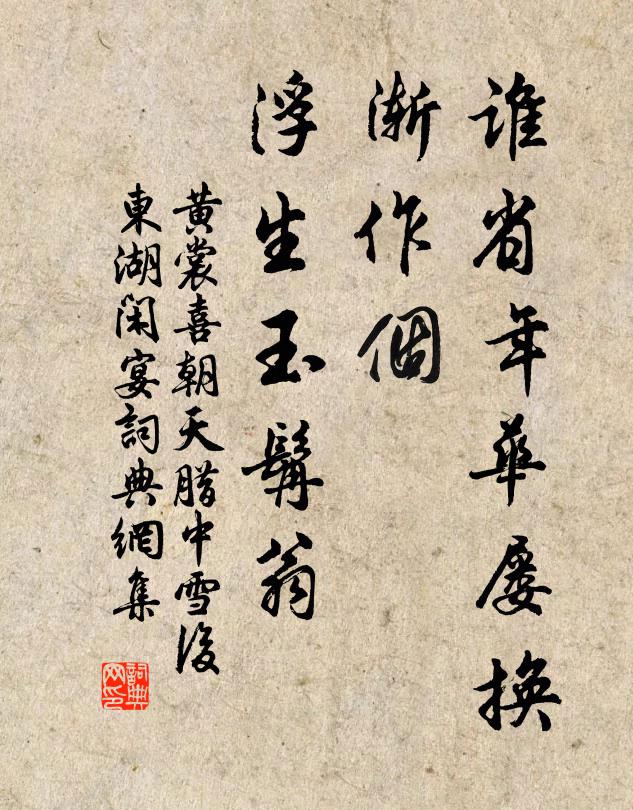 誰省年華屡換
漸作個
浮生玉髯翁
黄裳喜朝天腊中雪後
東湖閑宴詞典網集
詞典网印